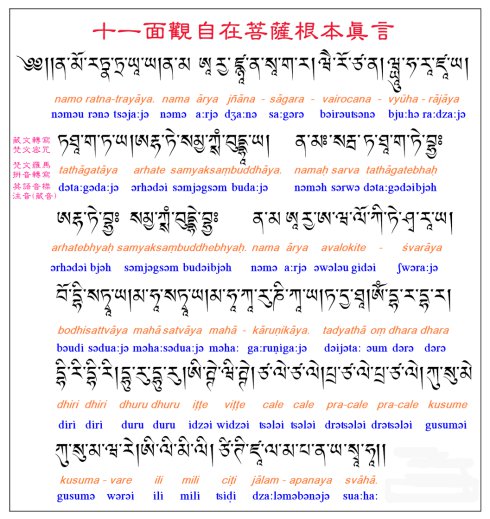 十一面觀自在菩薩根本眞言
༄༅།།ན་མོ་རཏྣ་ཏྲ་ཡཱ་ཡ།ན་མ ཨཱརྱ་ཛྙཱན་སཱ་ག་ར། ཝཻ་རོ་ཙ་ན། ཝྱཱུ་ཧ་རཱ་ཛཱ་ཡ།
namo ratna-trayāya. nama ārya jñāna - sāgara - vairocana - vyūha - rājāya
nəməu rənə tsəja:jə nəmə a:rjə dʒa:nə sa:gərə bəirəutsənə bju:hə ra:dza:jə
藏文轉寫
梵文
梵文羅馬
拼音轉寫
英語音標
注音(藏音)
ཏ་ཐཱ་ག་ཏ་ཡ།ཨརྷ་ཏེ་སམྱཀྶཾ་བུདྡྷཱ་ཡ། ན་མཿ་སརྦ་ཏ་ཐཱ་ག་ཏེ་བྷྱཿ
tathāgatāya arhate samyaksaṃbuddhāya. namaḥ sarva tathāgatebhaḥ
dəta:gəda:jə ərhədəi səmjəgsəm buda:jə nəməh sərwə dəta:gədəibjəh
ཨརྷ་ཏེ་བྷྱཿ སམྱཀྶཾ་བུདྡྷེ་བྷྱཿ ན་མ ཨཱརྱ་ཨ་ཝ་ལོ་ཀི་ཏེ་ཤྭ་རཱ་ཡ།
arhatebhyaḥ samyaksaṃbuddhebhyaḥ. nama ārya avalokite - śvarāya
ərhədəi bjəh səmjəgsəm budəibjəh nəmə a:rjə əwələu gidəi ʃwəra:jə
བོ་དྷི་སཏྭཱ་ཡ།མ་ཧཱ་སཏྭཱ་ཡ།མ་ཧཱ་ཀཱ་རུ་ཎི་ཀཱ་ཡ།ཏདྱ་ཐཱ།ཨོཾ་དྷ་ར་དྷ་ར།
bodhisattvāya mahā satvāya mahā - kāruṇikāya. tadyathā oṃ dhara dhara
bəudi sədua:jə məha:sədua:jə məha: ga:ruṇiga:jə dəijəta: əum dərə dərə
དྷི་རི་དྷི་རི།དྷུ་རུ་དྷུ་རུ།ཨི་ཊྚེ་ཝི་ཊྚེ།ཙ་ལེ་ཙ་ལེ།པྲ་ཙ་ལེ་པྲ་ཙ་ལེ།ཀུ་སུ་མེ
dhiri dhiri dhuru dhuru iṭṭe viṭṭe cale cale pra-cale pra-cale kusume
diri diri duru duru idzəi widzəi tsələi tsələi drətsələi drətsələi gusuməi
ཀུ་སུ་མ་ཝ་རེ།ཨི་ལི་མི་ལི། ཙི་ཊི་ཛཱ་ལ་མ་པ་ན་ཡ་སྭཱ་ཧཱ།།
kusuma - vare ili mili ciṭi jālam - apanaya svāhā.
gusumə wərəi ili mili tsiḍi dza:ləməbənəjə sua:ha: